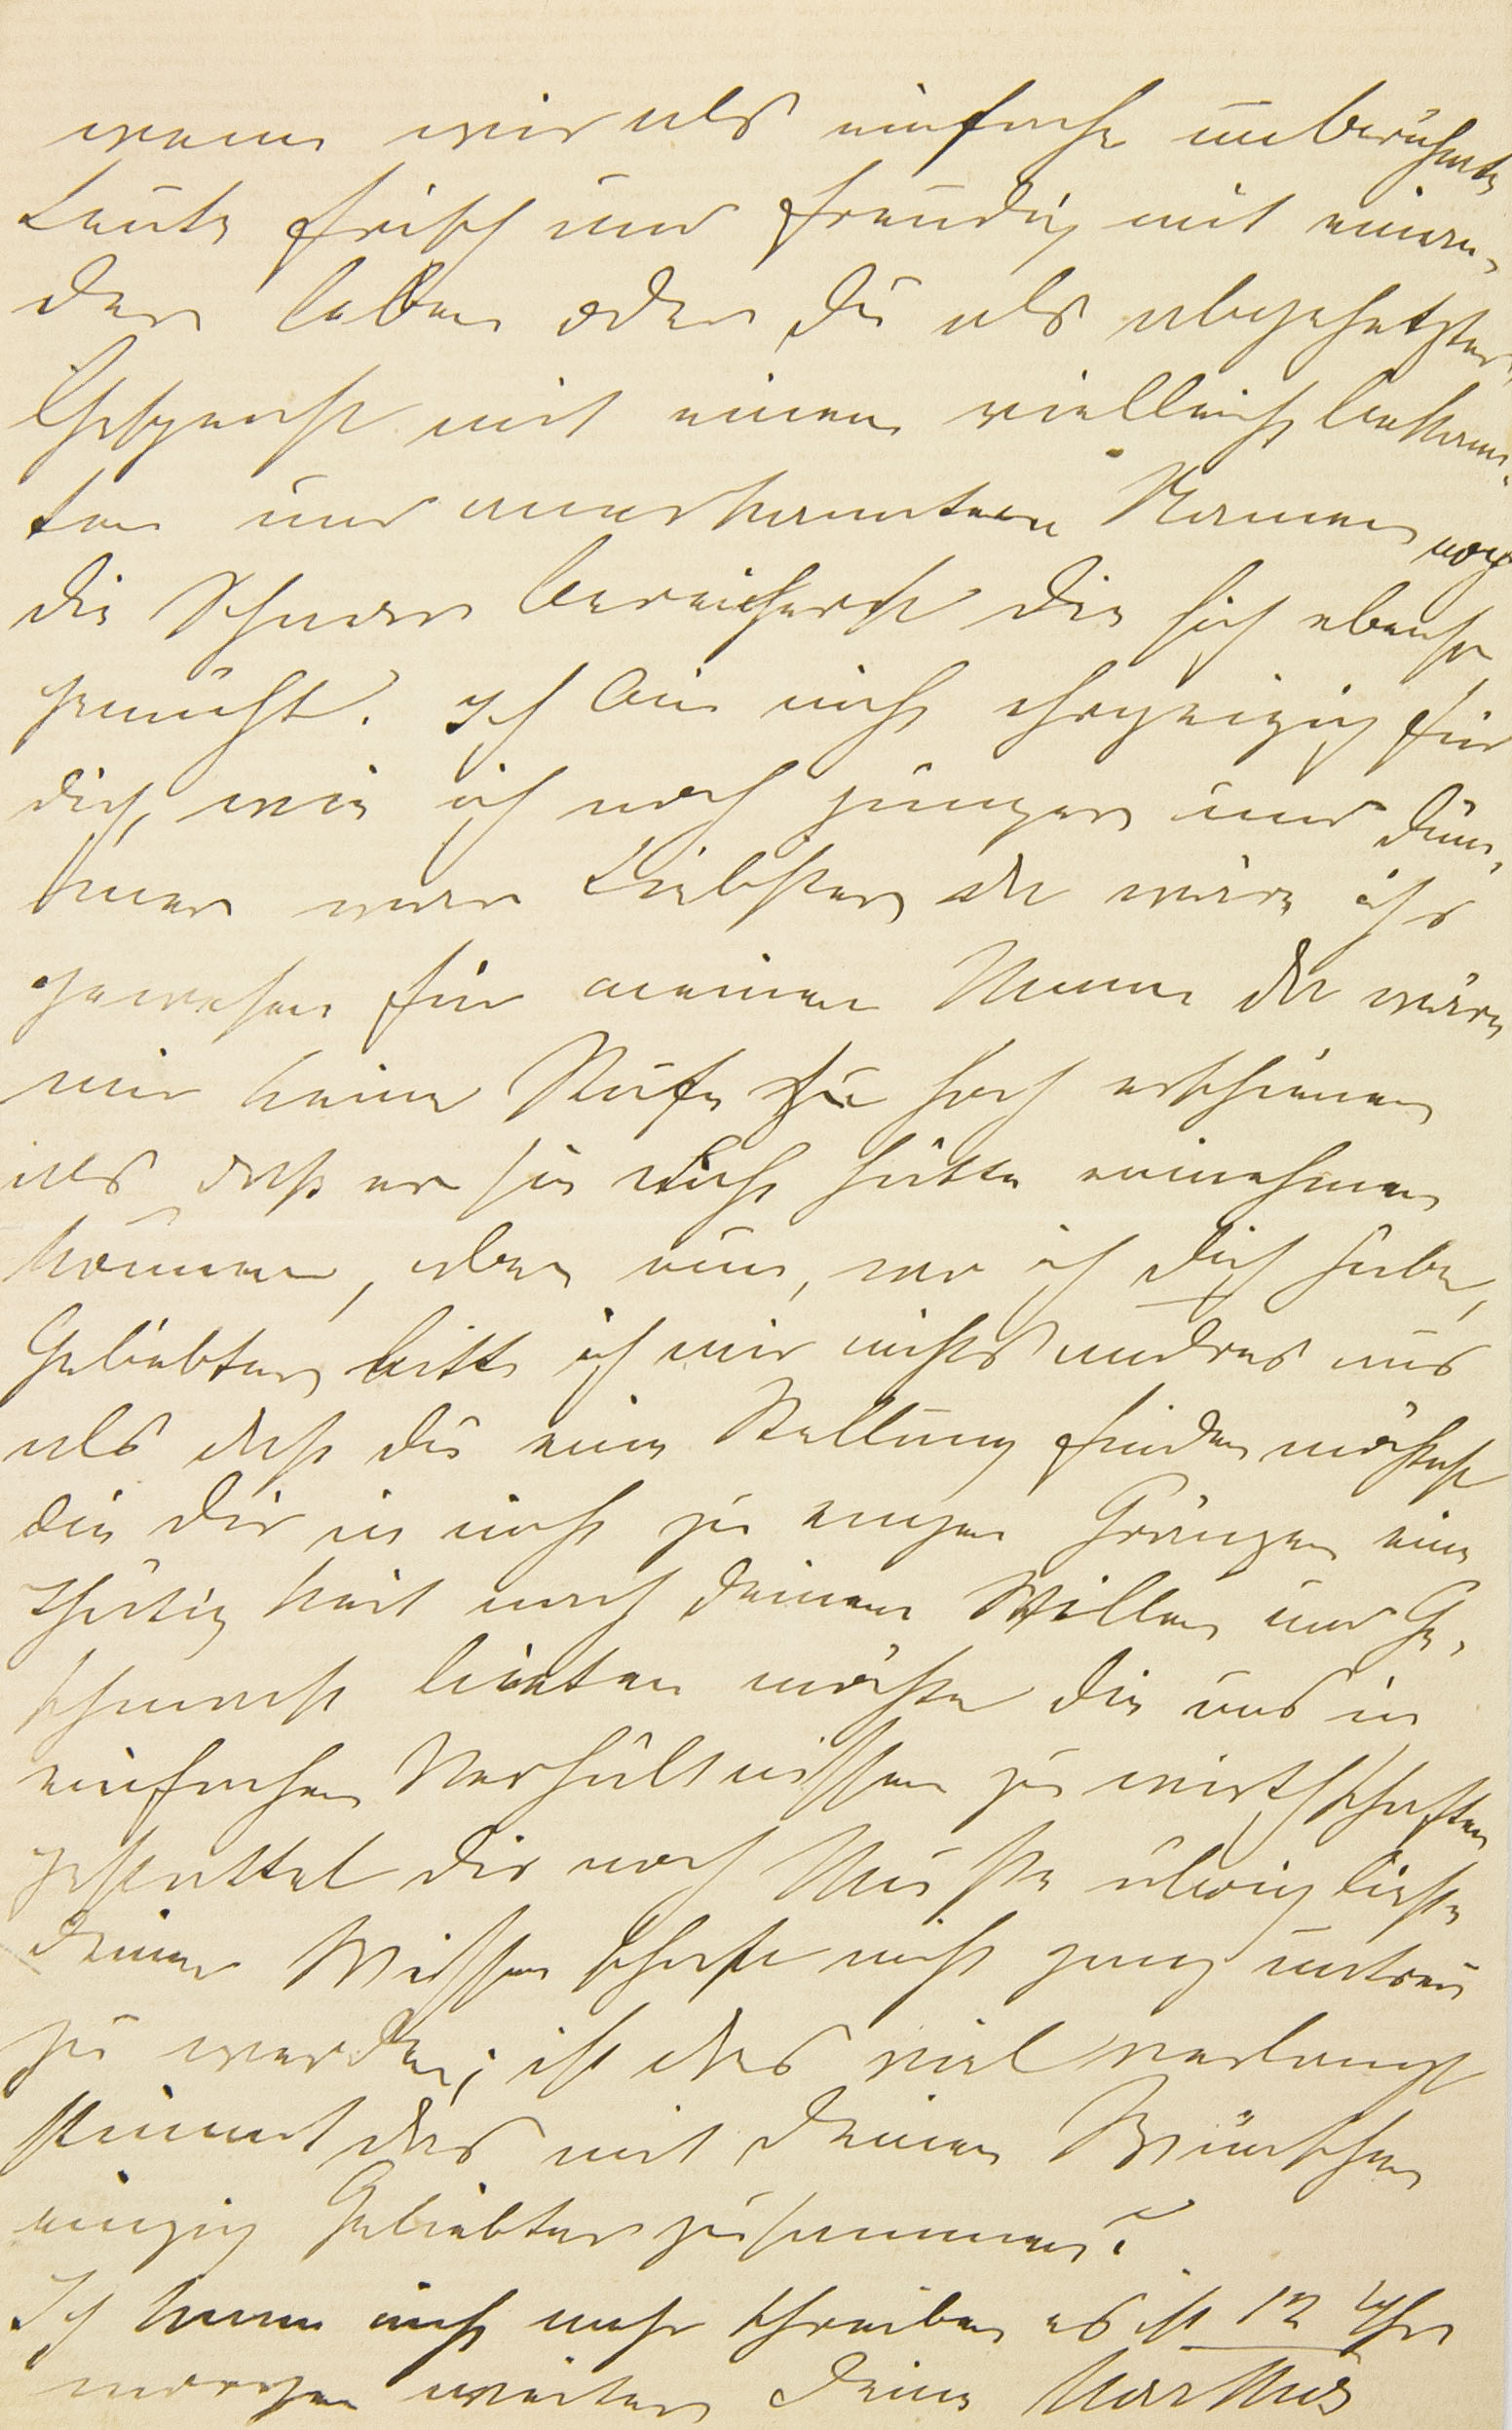 wenn wir als einfache unberühmte
Leute frisch und freudig mit einan-
der leben oder Du als abgehetztes
Gespenst mit einem vielleicht bekann-
ten und anerkannten Namen noch
die Schaar bereicherst die sich ebenso
gemüht. Ich bin nicht ehrgeizig für
dich, wie ich noch jünger und düm-
mer war Liebster da wäre ichs
gewesen für meinen Mann da wäre
mir keine Stufe zu hoch erschienen
als daß er sie nicht hätte einnehmen
können, aber nun, wo ich Dich habe,
Geliebter, bitte ich mir nichts andres aus
als daß Du eine Stellung finden möchtest
die Dir in nicht zu engen Gränzen eine
Thätigkeit nach Deinem Willen und Ge-
schmack bieten möchte die uns in
einfachen Verhältnissen zu wirthschaften
gestattet Dir noch Muße übrig ließe
Deiner Wissenschaft nicht ganz untreu
zu werden; ist das viel verlangt
stimmt das mit Deinen Wünschen
einzig Geliebter zusammen?
Ich kann nicht mehr schreiben es ist 12 Uhr
morgen weiter Deine Martha